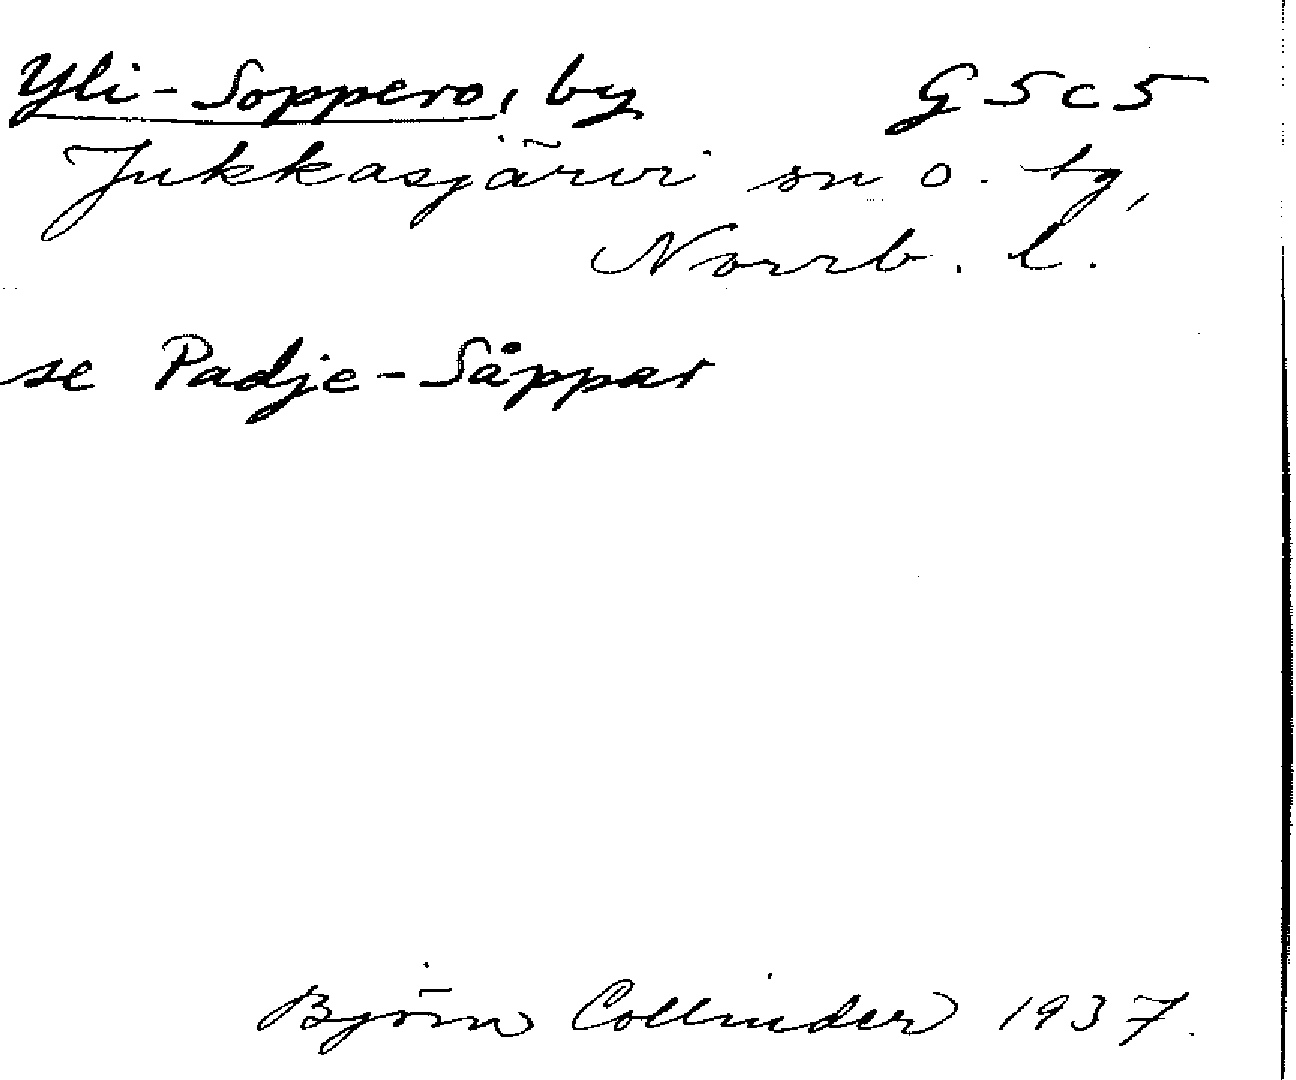 Yli-Soppero, by G5c5
Jukkasjärvi sn o. tg,
Norrb. l.
se Padje-Såppar
Björn Collinder 1937.